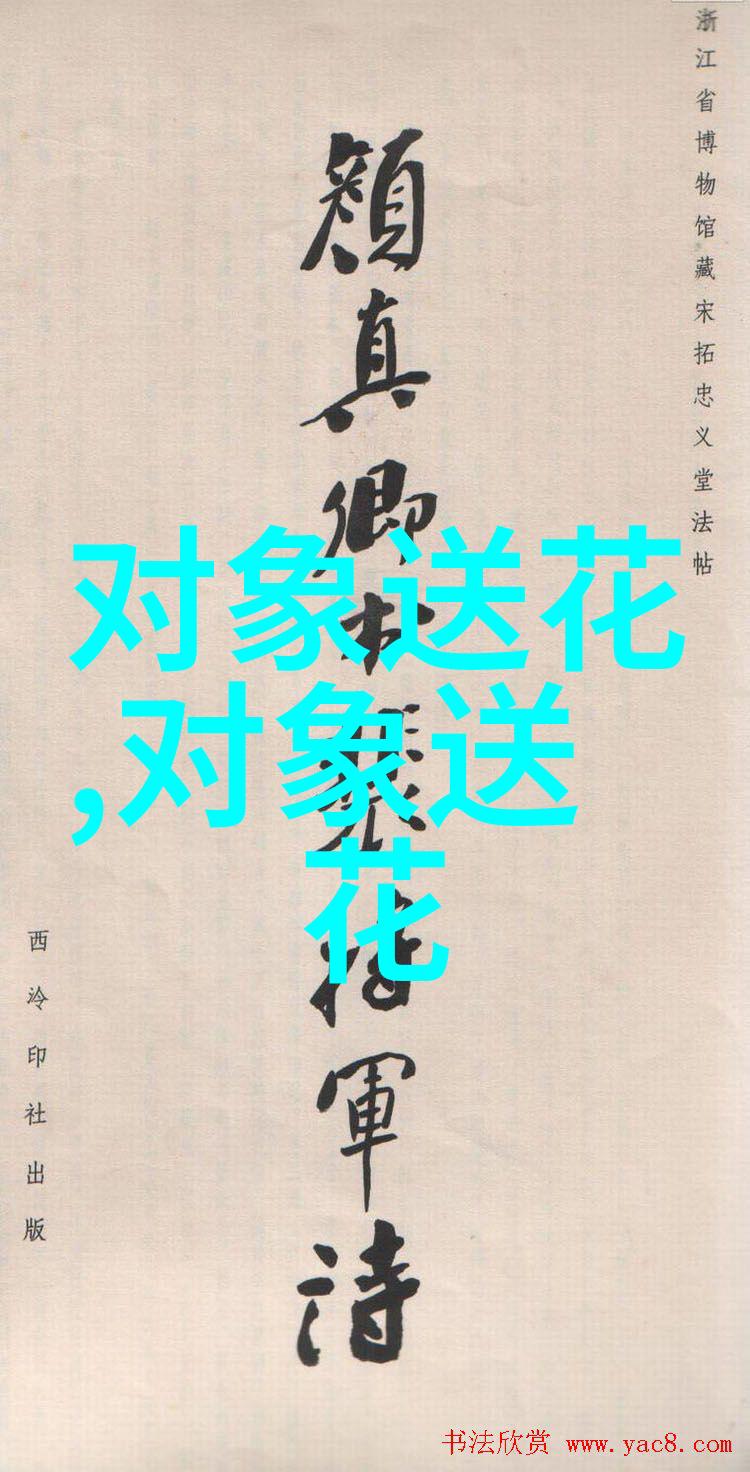 浙江省博物馆藏宋拓忠义堂法帖
顏真卿书裴将軍诗
对象送花
,对象送
花
西泠印社出版
书法欣赏 www.yac8.com